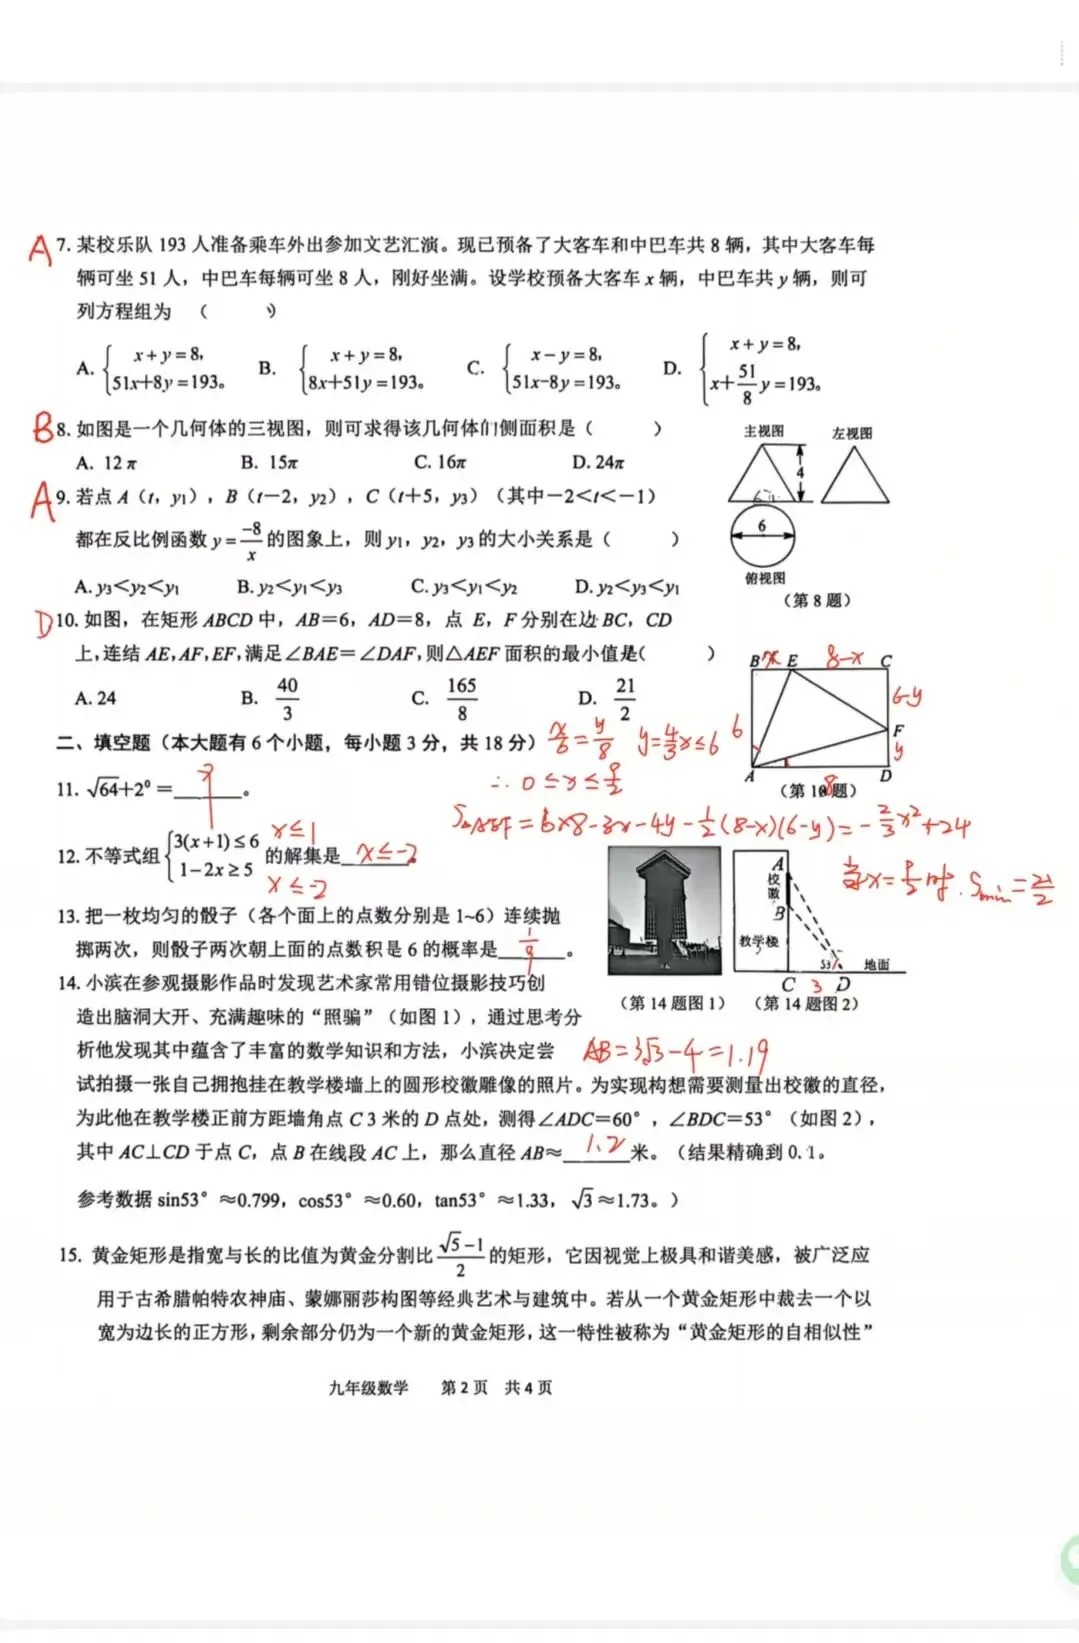 A 7. 某校乐队 193 人准备乘车外出参加文艺汇演。现已预备了大客车和中巴车共 8 辆，其中大客车每
辆可坐 51 人，中巴车每辆可坐 8 人，刚好坐满。设学校预备大客车 x 辆，中巴车共 y 辆，则可
列方程组为 （ ）
A. { x+y=8, 51x+8y=193。 B. { x+y=8, 8x+51y=193。 C. { x-y=8, 51x-8y=193。 D. { x+y=8, x+51/8 y=193。
B 8. 如图是一个几何体的三视图，则可求得该几何体的侧面积是（ ）
A. 12π B. 15π C. 16π D. 24π
主视图 左视图
4
6
俯视图
（第 8 题）
A 9. 若点 A（t，y₁），B（t－2，y₂），C（t+5，y₃）（其中－2＜t＜－1）
都在反比例函数 y=-8/x 的图象上，则 y₁，y₂，y₃ 的大小关系是（ ）
A. y₃＜y₂＜y₁ B. y₂＜y₁＜y₃ C. y₃＜y₁＜y₂ D. y₂＜y₃＜y₁
D 10. 如图，在矩形 ABCD 中，AB＝6，AD＝8，点 E，F 分别在边 BC，CD
上，连结 AE，AF，EF，满足∠BAE＝∠DAF，则△AEF 面积的最小值是（ ）
A. 24 B. 40/3 C. 165/8 D. 21/2
B x E 8-x C
6-y
6 F
y
A 8 D
（第 10 题）
二、填空题（本大题有 6 个小题，每小题 3 分，共 18 分）
x/6=y/8 y=4/3x≤6
∴ 0≤x≤9/2
11. √64+2⁰ =______。
S△AEF=6×8-3x-4y-1/2(8-x)(6-y)=-2/3x²+24
当x=9/2时.Smin=21/2
12. 不等式组 { 3(x+1)≤6 1-2x≥5 的解集是 x≤-2 。
x≤1
x≤-2
13. 把一枚均匀的骰子（各个面上的点数分别是 1~6）连续抛
掷两次，则骰子两次朝上面的点数积是 6 的概率是 1/9 。
A
校徽
B
教学楼
53°
地面
C 3 D
（第 14 题图 1） （第 14 题图 2）
14. 小滨在参观摄影作品时发现艺术家常用错位摄影技巧创
造出脑洞大开、充满趣味的“照骗”（如图 1），通过思考分
析他发现其中蕴含了丰富的数学知识和方法，小滨决定尝
AB=3√3-4=1.19
试拍摄一张自己拥抱挂在教学楼墙上的圆形校徽雕像的照片。为实现构想需要测量出校徽的直径，
为此他在教学楼正前方距墙角点 C 3 米的 D 点处，测得∠ADC=60°，∠BDC=53°（如图 2），
其中 AC⊥CD 于点 C，点 B 在线段 AC 上，那么直径 AB≈ 1.2 米。（结果精确到 0.1。
参考数据 sin53°≈0.799，cos53°≈0.60，tan53°≈1.33，√3≈1.73。）
15. 黄金矩形是指宽与长的比值为黄金分割比 (√5-1)/2 的矩形，它因视觉上极具和谐美感，被广泛应
用于古希腊帕特农神庙、蒙娜丽莎构图等经典艺术与建筑中。若从一个黄金矩形中裁去一个以
宽为边长的正方形，剩余部分仍为一个新的黄金矩形，这一特性被称为“黄金矩形的自相似性”
九年级数学 第 2 页 共 4 页